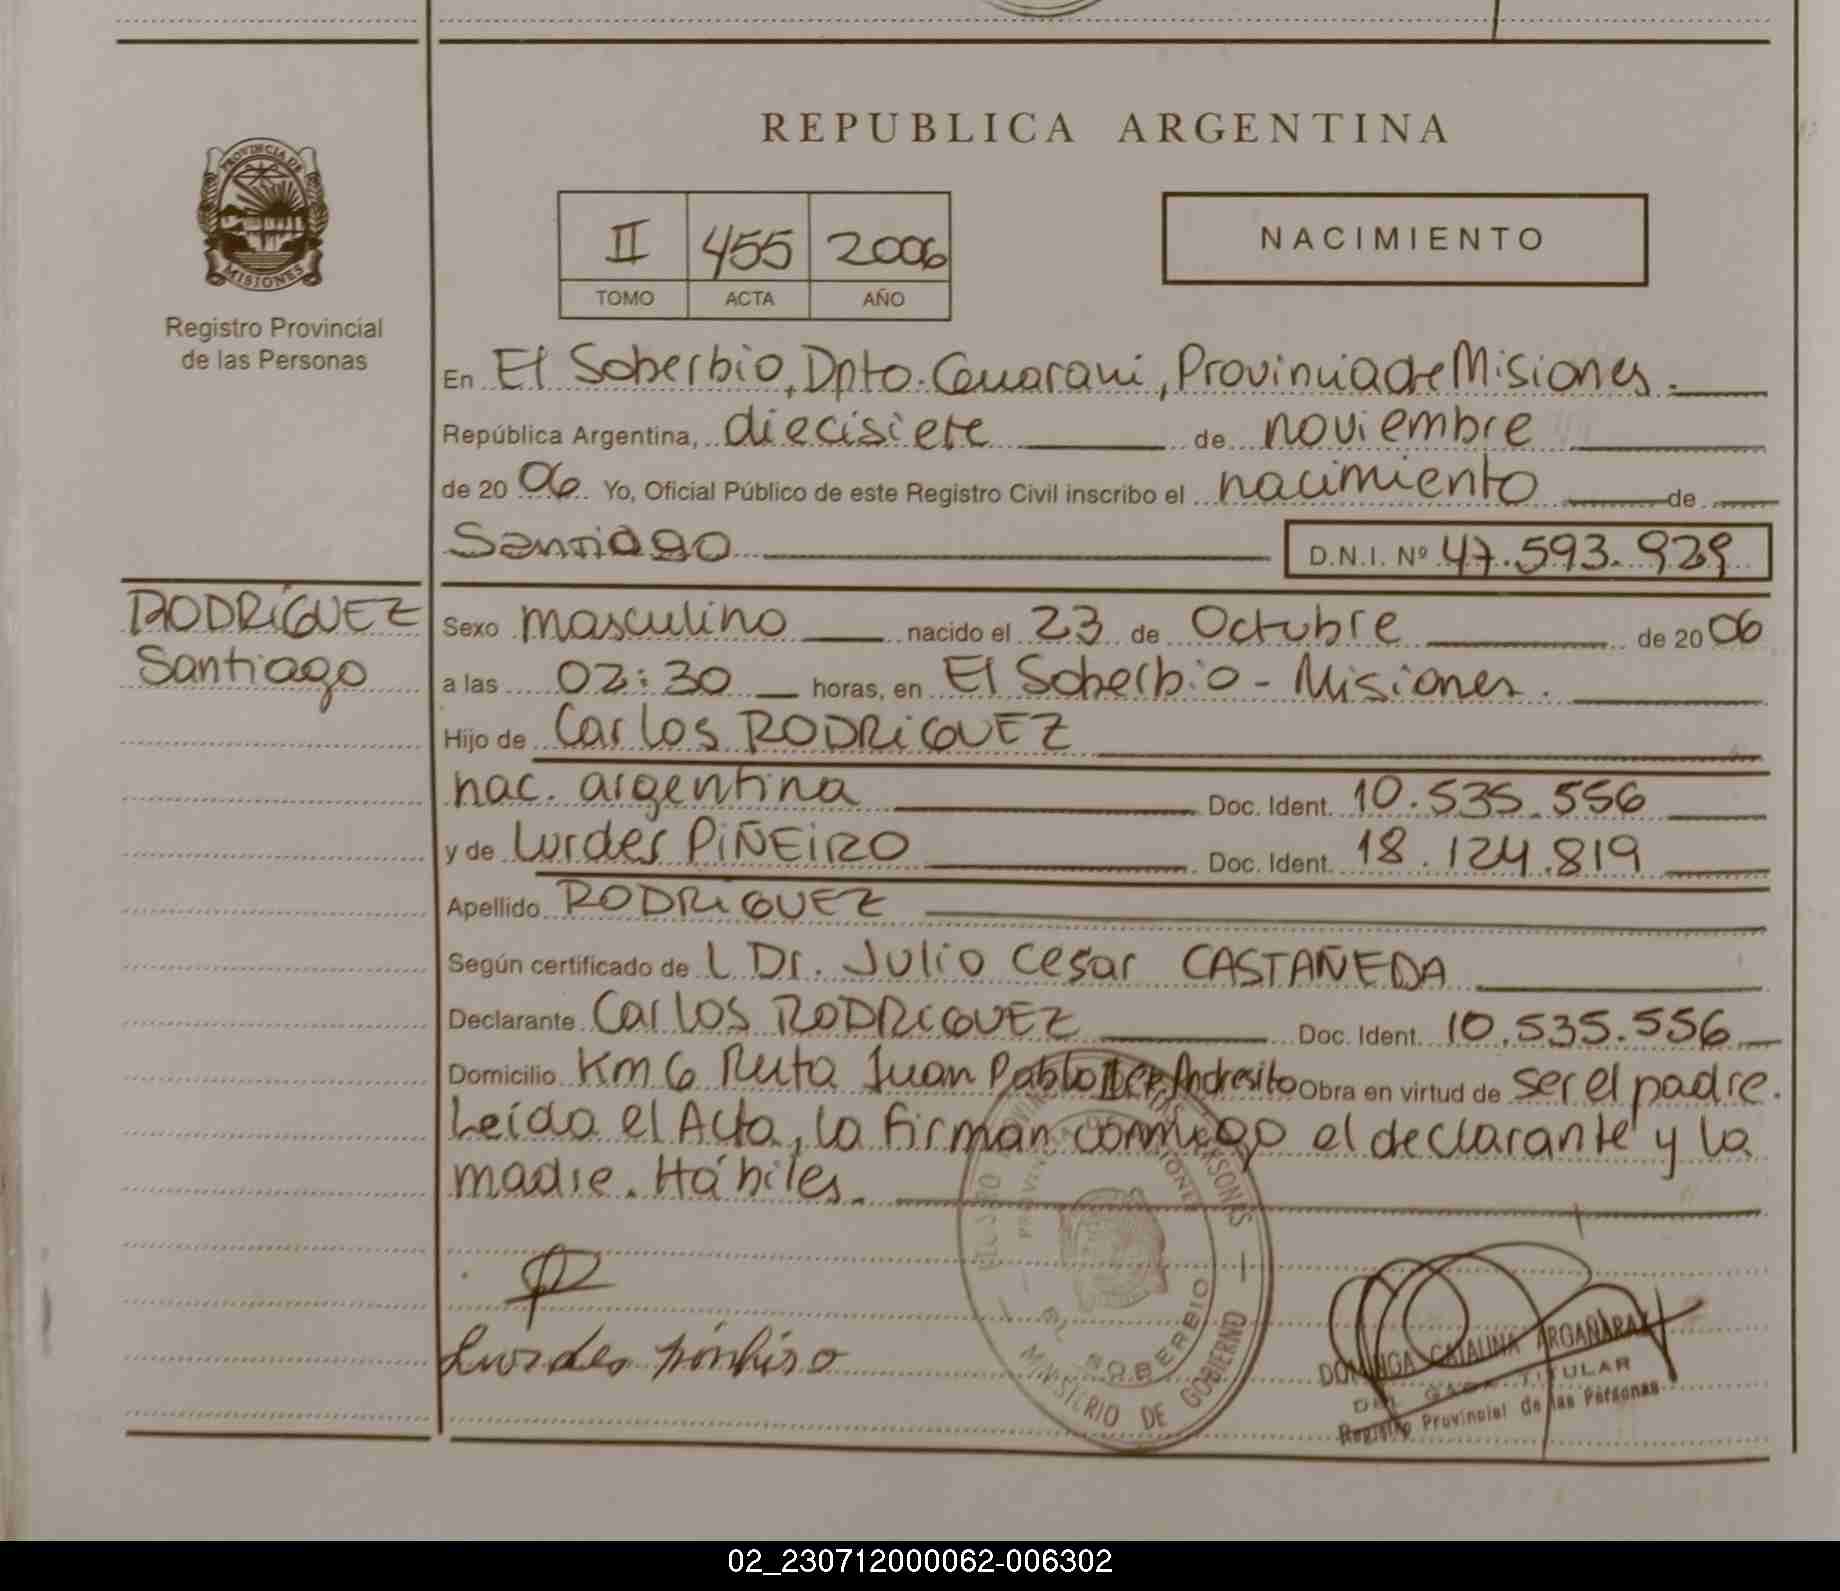 REPUBLICA ARGENTINA
PROVINCIA DE
MISIONES
Registro Provincial
de las Personas
II 455 2006
TOMO ACTA AÑO
NACIMIENTO
En El Soberbio, Dpto. Guarani, Provincia de Misiones.
República Argentina, diecisiete de noviembre
de 2006 Yo, Oficial Público de este Registro Civil inscribo el nacimiento de
Santiago D.N.I. Nº 47.593.929
RODRÍGUEZ
Santiago
Sexo masculino nacido el 23 de Octubre de 2006
a las 02:30 horas, en El Soberbio - Misiones.
Hijo de Carlos RODRiGUEZ
nac. argentina Doc. Ident. 10.535.556
y de Lurdes PiÑEiRO Doc. Ident. 18.124.819
Apellido RODRiGUEZ
Según certificado de l Dr. Julio Cesar CASTAÑEDA
Declarante Carlos RODRIGUEZ Doc. Ident. 10.535.556
Domicilio Km 6 Ruta Juan Pablo Andresito Obra en virtud de ser el padre.
Leída el Acta, la firman conmigo el declarante y la
madre. Hábiles.
Lurdes
EL SOBERBIO
MINISTERIO DE GOBIERNO
DOMINGA CATALINA ARGAÑARAZ
TITULAR
Registro Provincial de las Personas
02_230712000062-006302